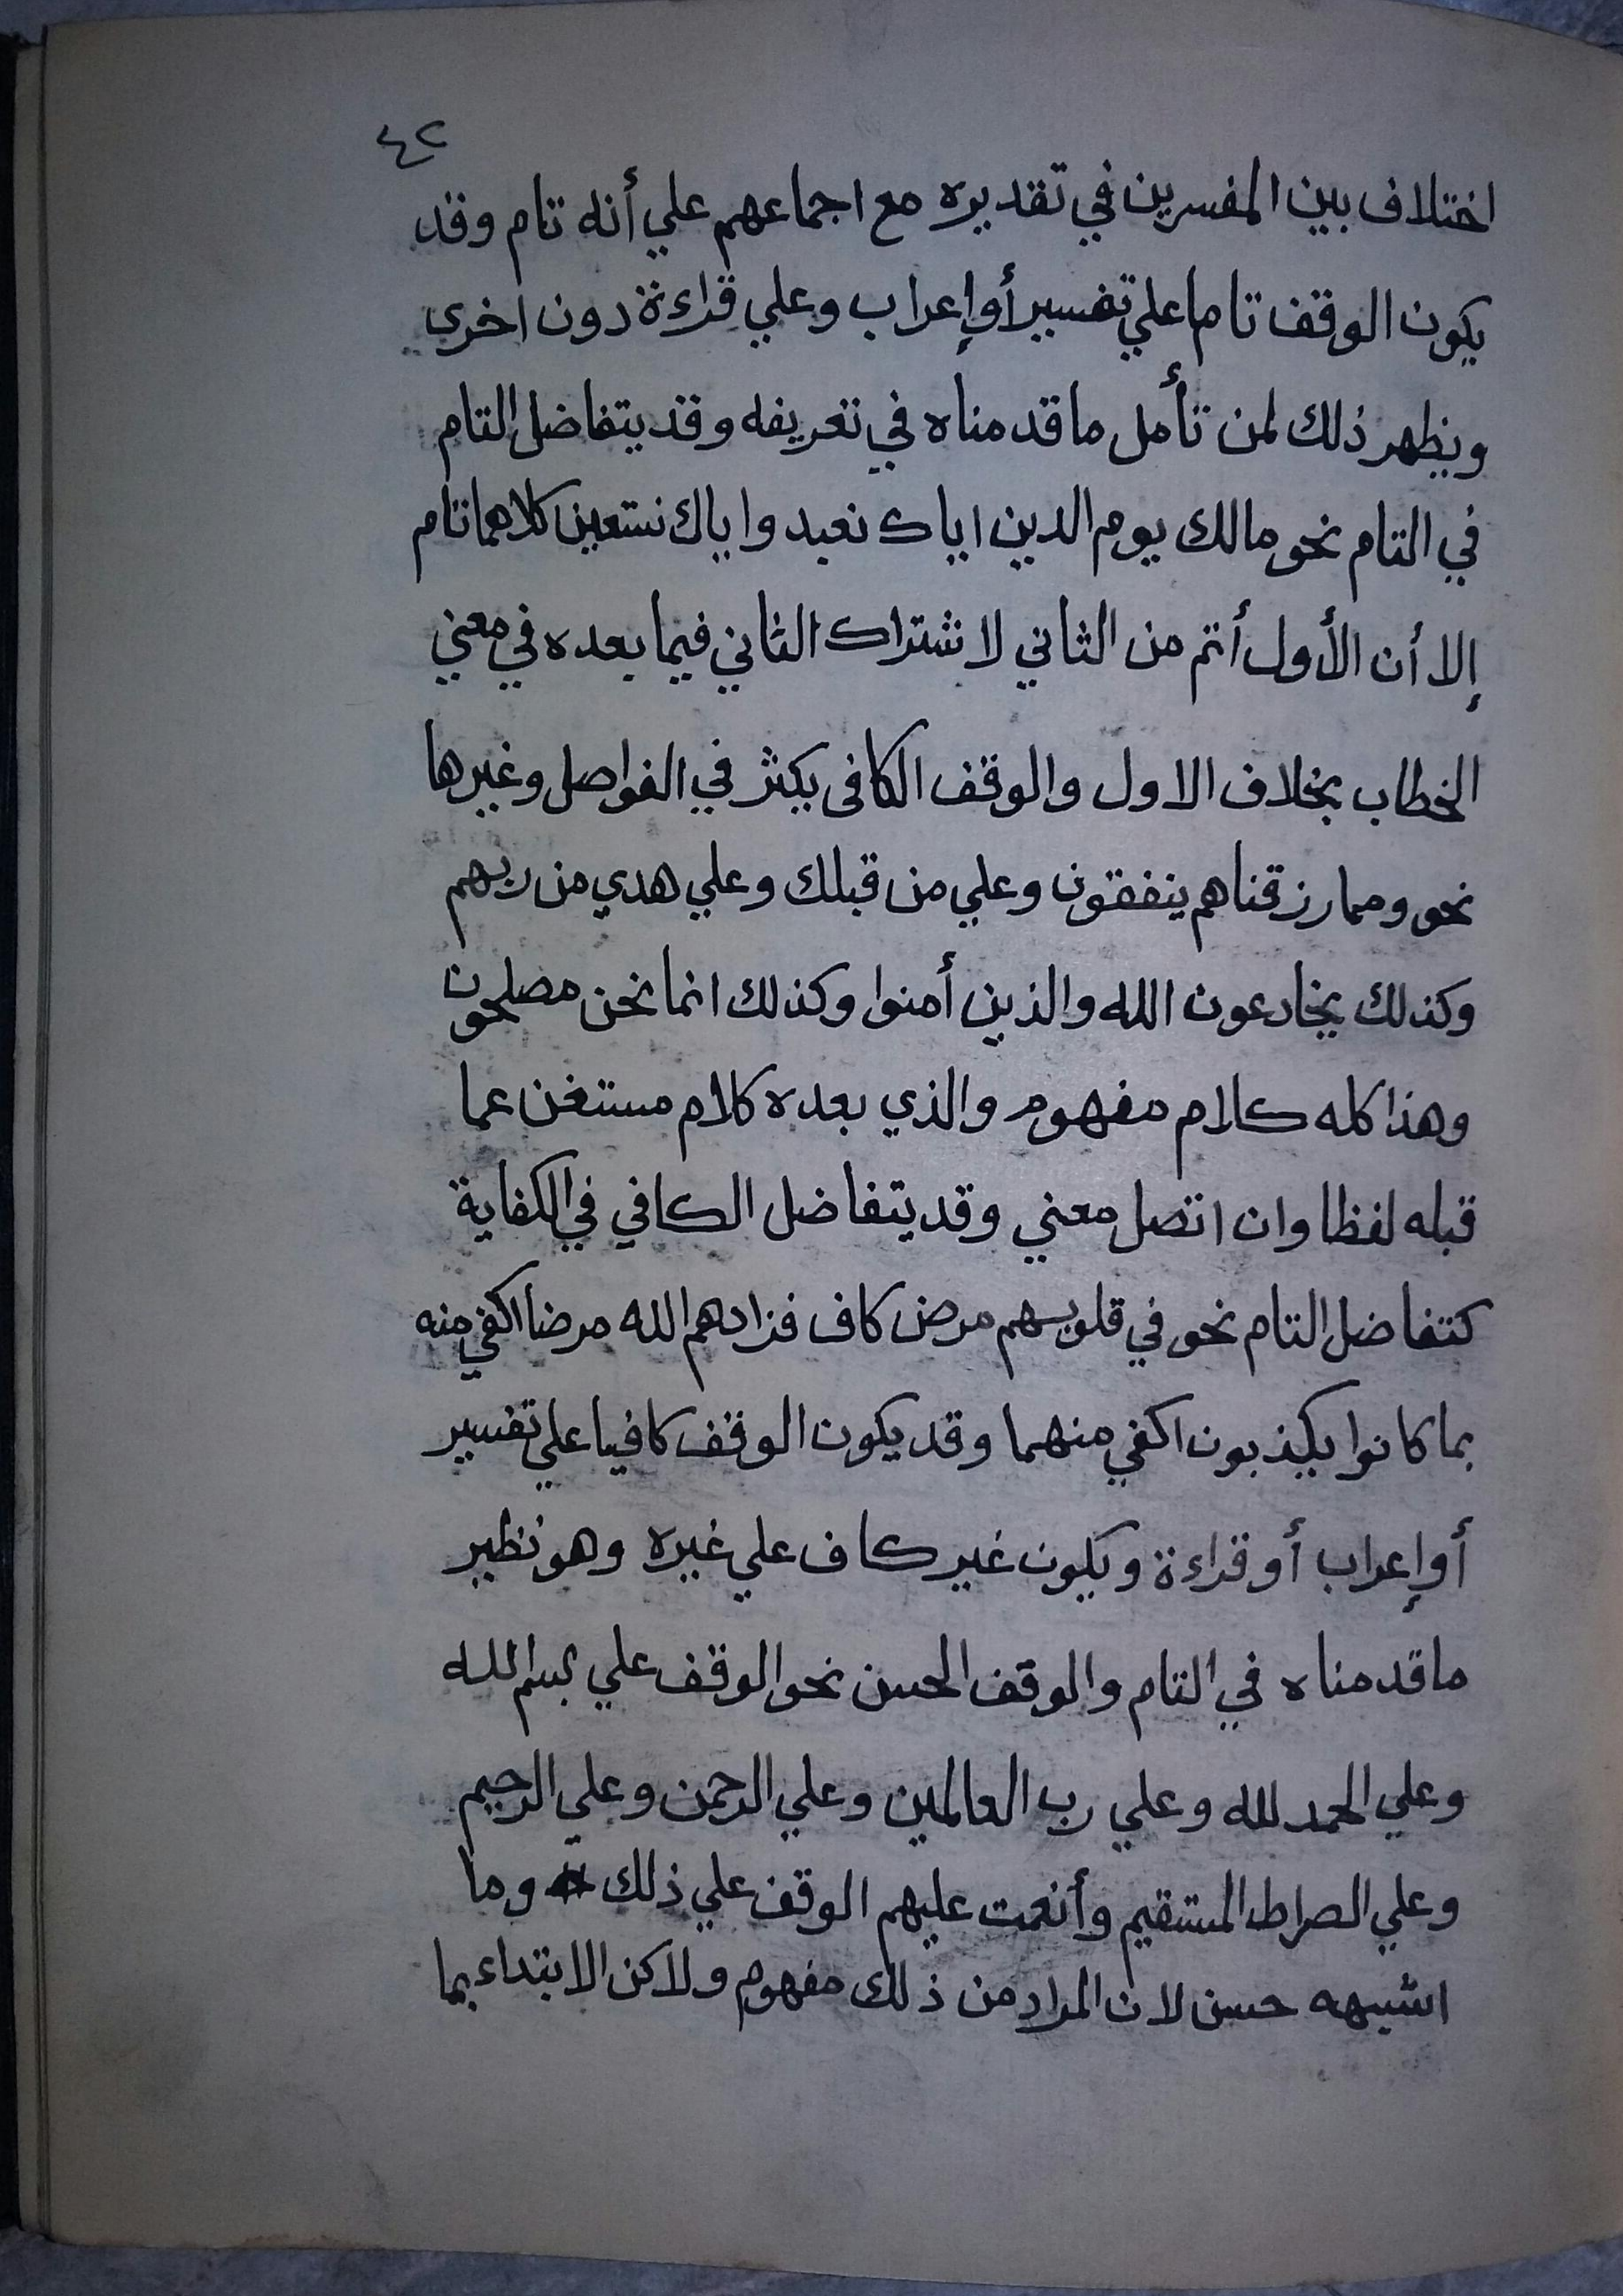 ٤٢
اختلاف بين المفسرين في تقديره مع اجماعهم علي أنه تام وقد
يكون الوقف تاما علي تفسير أو إعراب وعلي قراءة دون اخرى
ويظهر ذلك لمن تأمل ما قدمناه في تعريفه وقد يتفاضل التام
في التام نحو مالك يوم الدين اياك نعبد واياك نستعين كلاهما تام
إلا أن الأول أتم من الثاني لاشتراك الثاني فيما بعده في معني
الخطاب بخلاف الاول والوقف الكافى يكثر في الفواصل وغيرها
نحو ومما رزقناهم ينفقون وعلي من قبلك وعلي هدي من ربهم
وكذلك يخادعون الله والذين أمنوا وكذلك انما نحن مصلحون
وهذا كله كلام مفهوم والذي بعده كلام مستغن عما
قبله لفظا وان اتصل معني وقد يتفاضل الكافي في الكفاية
كتفاضل التام نحو في قلوبهم مرض كاف فزادهم الله مرضا اكفي منه
بما كانوا يكذبون اكفي منهما وقد يكون الوقف كافيا علي تفسير
أو إعراب أو قراءة ويكون غير كاف علي غيره وهو نظير
ما قدمناه في التام والوقف الحسن نحو الوقف علي بسم الله
وعلي الحمد لله وعلي رب العالمين وعلي الرحمن وعلي الرحيم
وعلي الصراط المستقيم وأنعمت عليهم الوقف علي ذلك وما
اشبهه حسن لان المراد من ذلك مفهوم ولاكن الابتداء بما